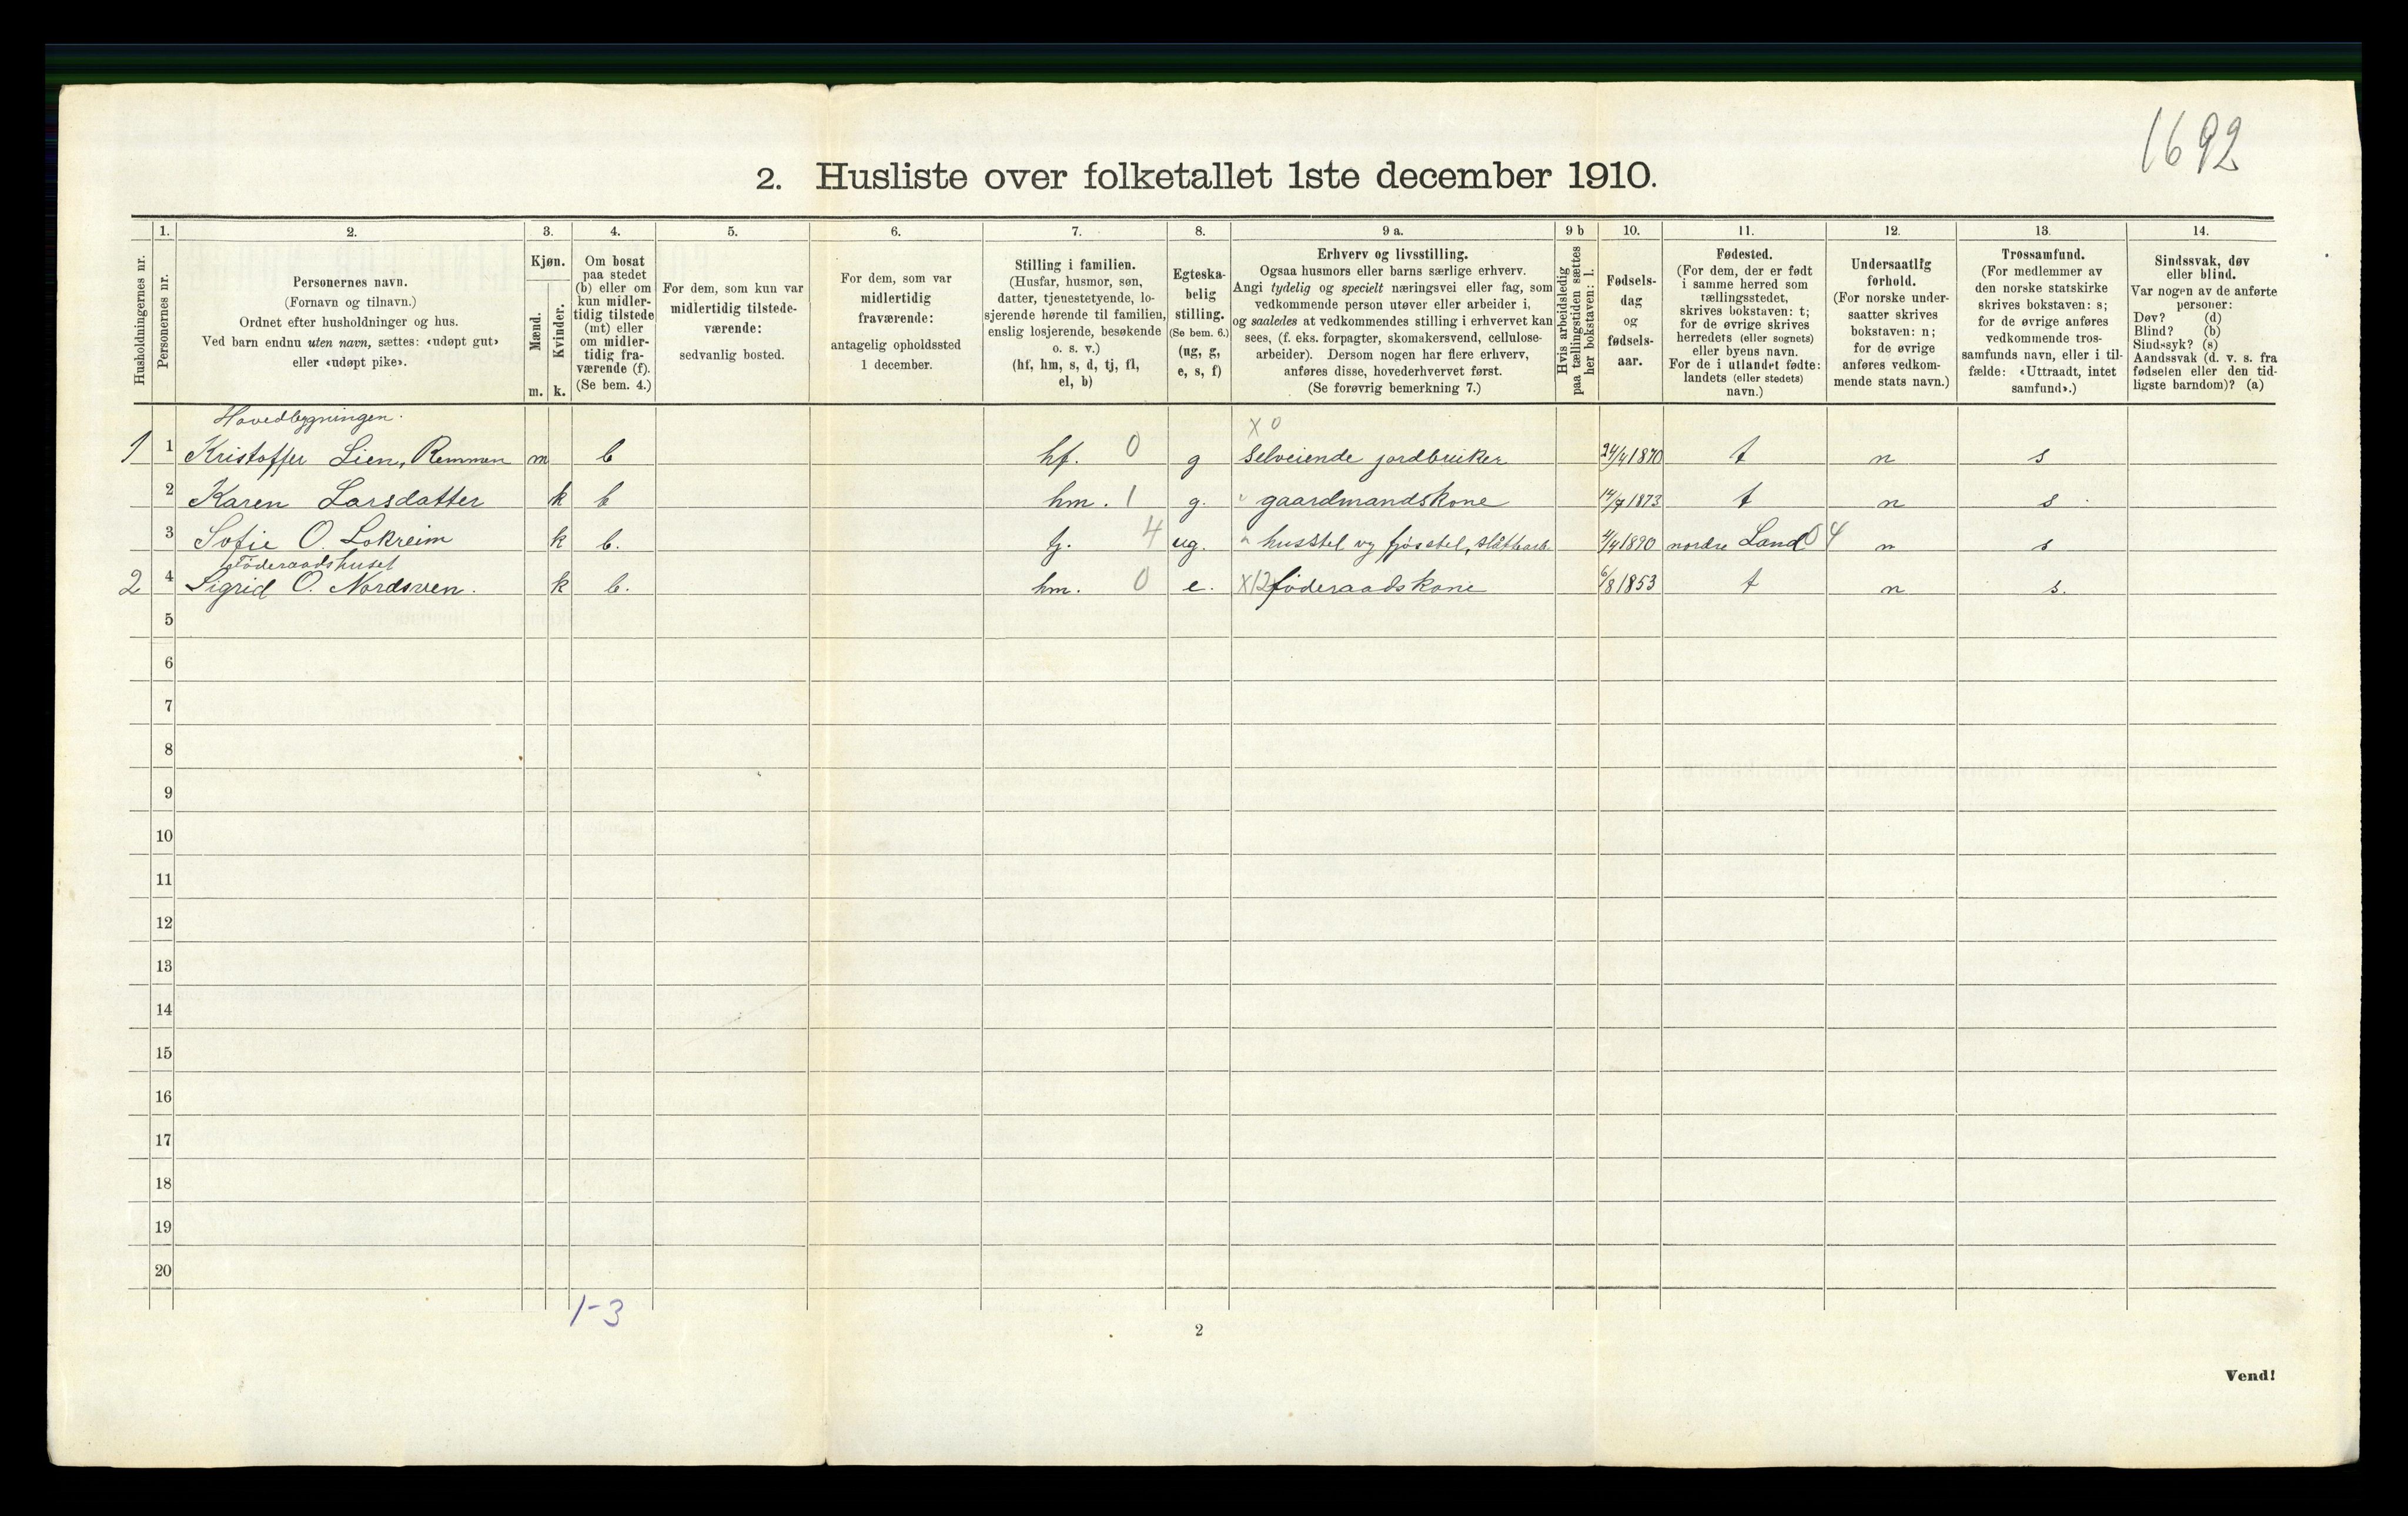 1692
2. Husliste over folketallet 1ste december 1910.
Husholdningernes nr.
1.
Personernes nr.
2.
Personernes navn.
(Fornavn og tilnavn.)
Ordnet efter husholdninger og hus.
Ved barn endnu uten navn, sættes: «udøpt gut»
eller «udøpt pike».
3.
Kjøn.
Mænd.
m.
Kvinder.
k.
4.
Om bosat
paa stedet
(b) eller om
kun midler-
tidig tilstede
(mt) eller
om midler-
tidig fra-
værende (f).
(Se bem. 4.)
5.
For dem, som kun var
midlertidig tilstede-
værende:
sedvanlig bosted.
6.
For dem, som var
midlertidig
fraværende:
antagelig opholdssted
1 december.
7.
Stilling i familien.
(Husfar, husmor, søn,
datter, tjenestetyende, lo-
sjerende hørende til familien,
enslig losjerende, besøkende
o. s. v.)
(hf, hm, s, d, tj, fl,
el, b)
8.
Egteska-
belig
stilling.
(Se bem. 6.)
(ug, g,
e, s, f)
9 a.
Erhverv og livsstilling.
Ogsaa husmors eller barns særlige erhverv.
Angi tydelig og specielt næringsvei eller fag, som
vedkommende person utøver eller arbeider i,
og saaledes at vedkommendes stilling i erhvervet kan
sees, (f. eks. forpagter, skomakersvend, cellulose-
arbeider). Dersom nogen har flere erhverv,
anføres disse, hovederhvervet først.
(Se forøvrig bemerkning 7.)
9 b
Hvis arbeidsledig
paa tællingstiden sættes
her bokstaven: l.
10.
Fødsels-
dag
og
fødsels-
aar.
11.
Fødested.
(For dem, der er født
i samme herred som
tællingsstedet,
skrives bokstaven: t;
for de øvrige skrives
herredets (eller sognets)
eller byens navn.
For de i utlandet fødte:
landets (eller stedets)
navn.)
12.
Undersaatlig
forhold.
(For norske under-
saatter skrives
bokstaven: n;
for de øvrige
anføres vedkom-
mende stats navn.)
13.
Trossamfund.
(For medlemmer av
den norske statskirke
skrives bokstaven: s;
for de øvrige anføres
vedkommende tros-
samfunds navn, eller i til-
fælde: «Uttraadt, intet
samfund».)
14.
Sindssvak, døv
eller blind.
Var nogen av de anførte
personer:
Døv? (d)
Blind? (b)
Sindssyk? (s)
Aandssvak (d. v. s. fra
fødselen eller den tid-
ligste barndom)? (a)
Hovedbygningen.
X 0
1 1 Kristoffer Lien, Remmen m b hf. 0 g selveiende jordbruker 24/4 1870 t n s
2 Karen Larsdatter k b hm. 1 g. gaardmandskone 14/7 1873 t n s
3 Sofie O. Lokreim k b. tj. 4 ug. husstel og fjøsstel, slåttearb. 4/4 1890 nordre Land 04 n s
Føderaadshuset
2 4 Sigrid O. Nordsven. k b. hm. 0 e. X12 føderaadskone 6/8 1853 t n s.
5
6
7
8
9
10
11
12
13
14
15
16
17
18
19
20
1-3
2
Vend!